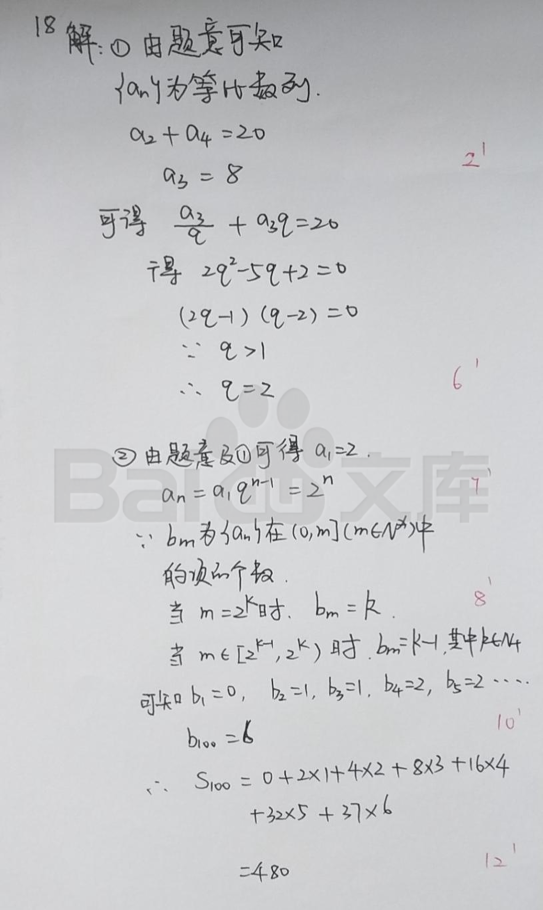 18 解:① 由题意可知
{an}为等比数列.
a₂+a₄=20
2'
a₃=8
可得 a₃/q + a₃q=20
得 2q²-5q+2=0
(2q-1)(q-2)=0
∵ q>1
∴ q=2
6'
② 由题意及①可得 a₁=2.
an=a₁qⁿ⁻¹=2ⁿ
7'
Bai 文库
∵ bm为{an}在(0,m](m∈N*)中
的项的个数.
当 m=2ᵏ时. bm=k.
8'
当 m∈[2ᵏ⁻¹,2ᵏ)时.bm=k-1,其中k∈N+
可知b₁=0, b₂=1, b₃=1, b₄=2, b₅=2 ····
10'
b₁₀₀=6
∴ S₁₀₀=0+2×1+4×2+8×3+16×4
+32×5+37×6
=480
12'